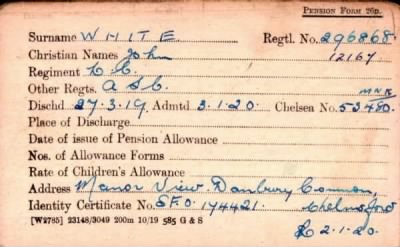 PENSION FORM 26D.
Surname WHITE Regtl. No. 296868
Christian Names John 12167
Regiment L.C.
Other Regts. A S.C. MNK
Dischd 27.3.19 Admtd 3.1.20. Chelsea No. 53480.
Place of Discharge
Date of issue of Pension Allowance
Nos. of Allowance Forms
Rate of Children's Allowance
Address Manor View Danbury Common,
Identity Certificate No. SFO. 174421. Chelmsford
[W2785] 23148/3049 200m 10/19 585 G & S 2.1.20.